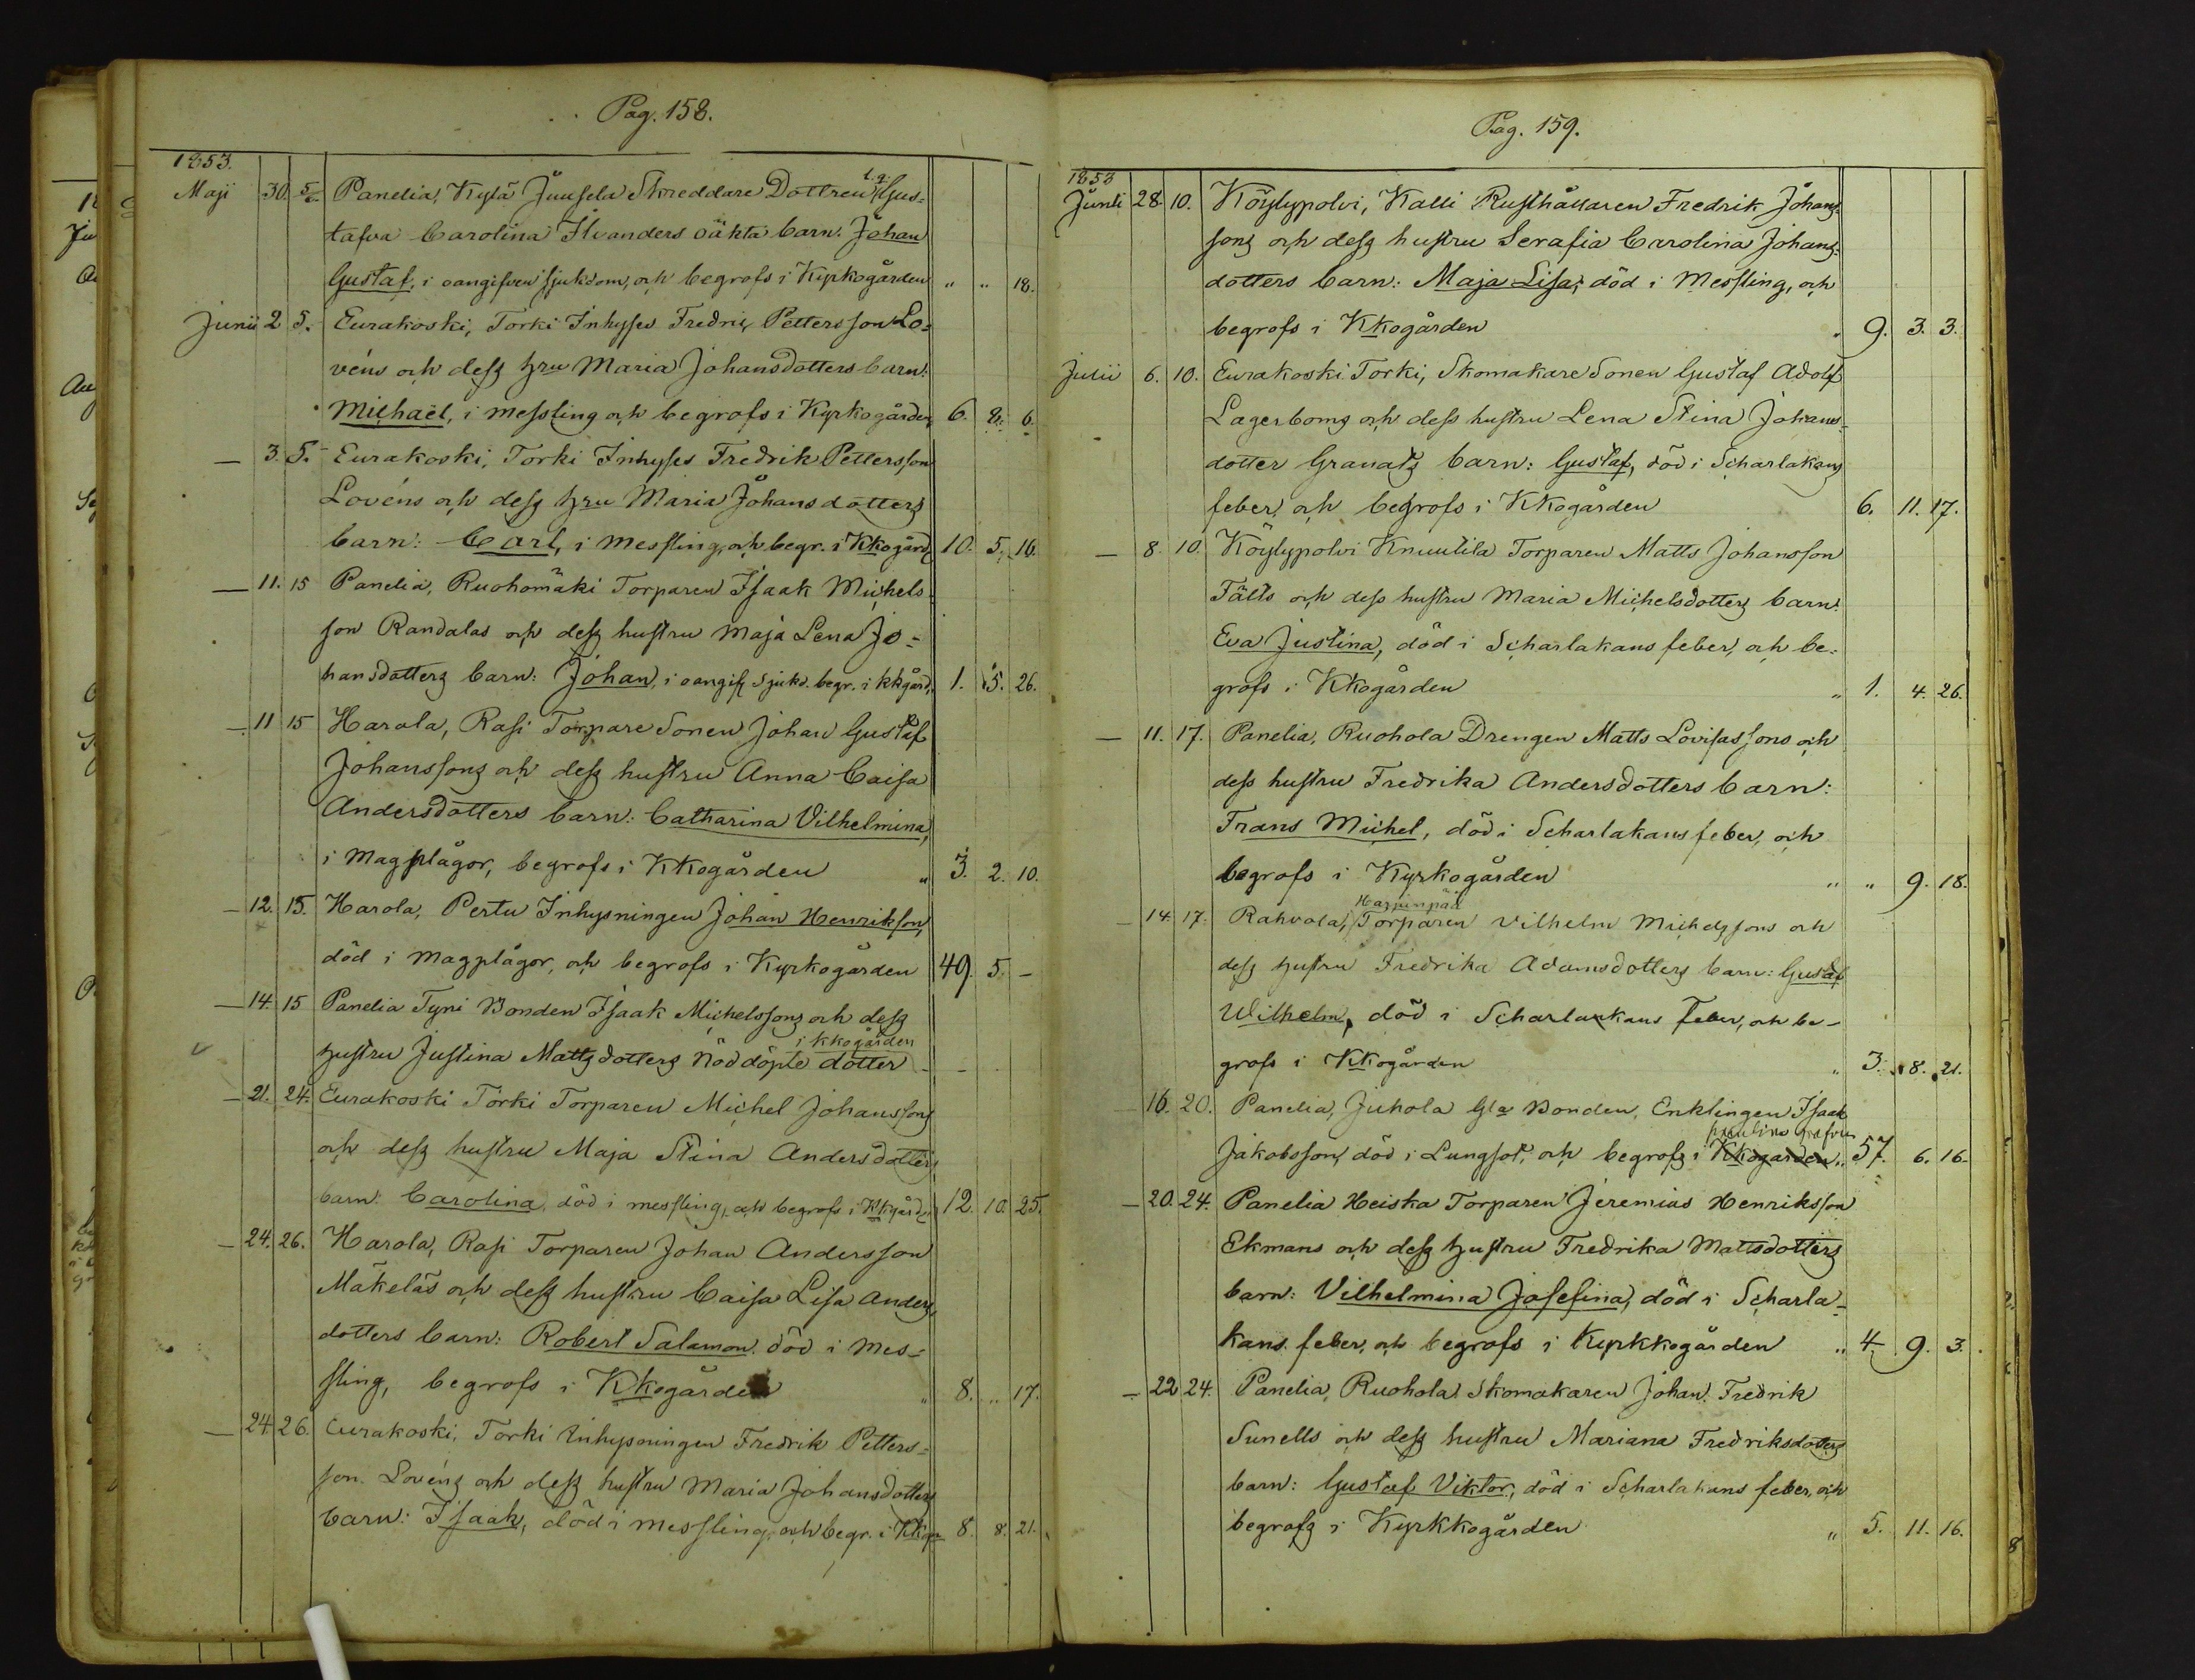 Pag. 158.
1853.
Maji 30. 5/6. Panelia, Kylä Juusela Skreddare Dottren l.q. Gus-
tafva Carolina Ilvanders oäkta barn: Johan
Gustaf, i oangifven sjukdom, och begrofs i Kyrkogården " " 18.
Junii 2 5. Eurakoski, Torki Inhyses Fredric Pettersson Lo-
véns och dess hru Maria Johansdotters barn:
Michaël, i messling och begrofs i Kyrkogården 6. 8. 6.
— 3. 5. Eurakoski, Torki Inhyses Fredrik Pettersson
Lovéns och dess hru Maria Johansdotters
barn: Carl, i messling, och begr. i Kkogård. 10. 5. 16.
— 11. 15 Panelia, Ruohomäki Torparen Isaak Michels
son Randalas och dess hustru Maja Lena Jo-
hansdotters barn: Johan, i oangifs sjukd. begr. i kkgård. 1. 5. 26.
— 11 15 Harola, Rasi Torpare Sonen Johan Gustaf
Johanssons och dess hustru Anna Caisa
Andersdotters barn: Catharina Vilhelmina,
i magplågor, begrofs i Kkogården " 3. 2. 10.
— 12. 15. Harola, Pertu Inhysningen Johan Henrikson,
död i magplågor, och begrofs i Kyrkogården 49. 5. —
— 14. 15 Panelia Tyni Bonden Isaak Michelssons och dess
i kkogården
hustru Justina Mattsdotters Nöddöpte dotter - -
— 21. 24. Eurakoski Torki Torparen Michel Johanssons
och dess hustru Maja Stina Andersdotters
barn: Carolina, död i messling, och begrofs i Kkgård. 12. 10. 25.
— 24. 26. Harola, Rasi Torparen Johan Andersson
Mäkeläs och dess hustru Caisa Lisa Anders
dotters barn: Robert Salamon, död i mes-
sling, begrofs i Kkogården " 8. " 17.
— 24 26. Eurakoski, Torki Inhysningen Fredrik Petters-
son Lovéns och dess hustru Maria Johansdotters
barn: Isaak, död i messling, och begr. i Kkogn 8. 8. 21.
Pag. 159.
1853
Junii 28. 10. Köylypolvi, Kalli Rusthållaren Fredrik Johans-
sons och dess hustru Serafia Carolina Johans-
dotters barn: Maja Lisa, död i Messling, och
begrofs i Kkogården " 9. 3. 3.
Julii 6. 10. Eurakoski Torki, Skomakare Sonen Gustaf Adolf
Lagerboms och dess hustru Lena Stina Johans-
dotter Granats barn: Gustaf, död i Scharlakans
feber, och begrofs i Kkogården 6. 11. 17.
— 8. 10. Köylypolvi Knuutila Torparen Matts Johansson
Fälts och dess hustru Maria Michelsdotters barn:
Eva Justina, död i Scharlakans feber, och be-
grofs i Kkogården " 1. 4. 26.
— 11. 17. Panelia, Ruohola Drengen Matts Lovisassons och
dess hustru Fredrika Andersdotters barn:
Frans Michel, död i Scharlakans feber, och
begrofs i Kyrkogården " " 9. 18.
Harjunpää
— 14. 17. Rahvola, Torparen Vilhelm Michelssons och
dess hustru Fredrika Adamsdotters barn: Gustaf
Wilhelm, död i Scharlankans feber, och be-
grofs i Kkogården " 3. 8. 21.
— 16. 20. Panelia, Juhola Gla Bonden, Enklingen Isaak
Jakobsson, död i Lungsot, och begrofs i Kkogården " 57. 6. 16.
— 20. 24. Panelia Heiska Torparen Jeremias Henriksson
Ekmans och dess hustru Fredrika Mattsdotters
barn: Vilhelmina Josefina, död i Scharla-
kans feber, och begrofs i Kyrkkogården " 4. 9. 3.
— 22 24. Panelia, Ruohola Skomakaren Johan Fredrik
Sunells och dess hustru Mariana Fredriksdotters
barn: Gustaf Viktor, död i Scharlakans feber, och
begrofs i Kyrkkogården " 5. 11. 16.